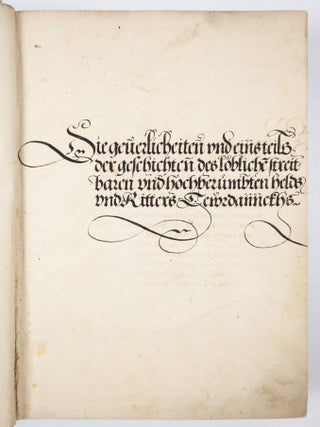 Die geuerlicheiten̄ vnd eins teils
der geschichten̄ des loblichen̄ streit
baren vnd hochberümbten helds
vnd Ritters Tewrdannckhs